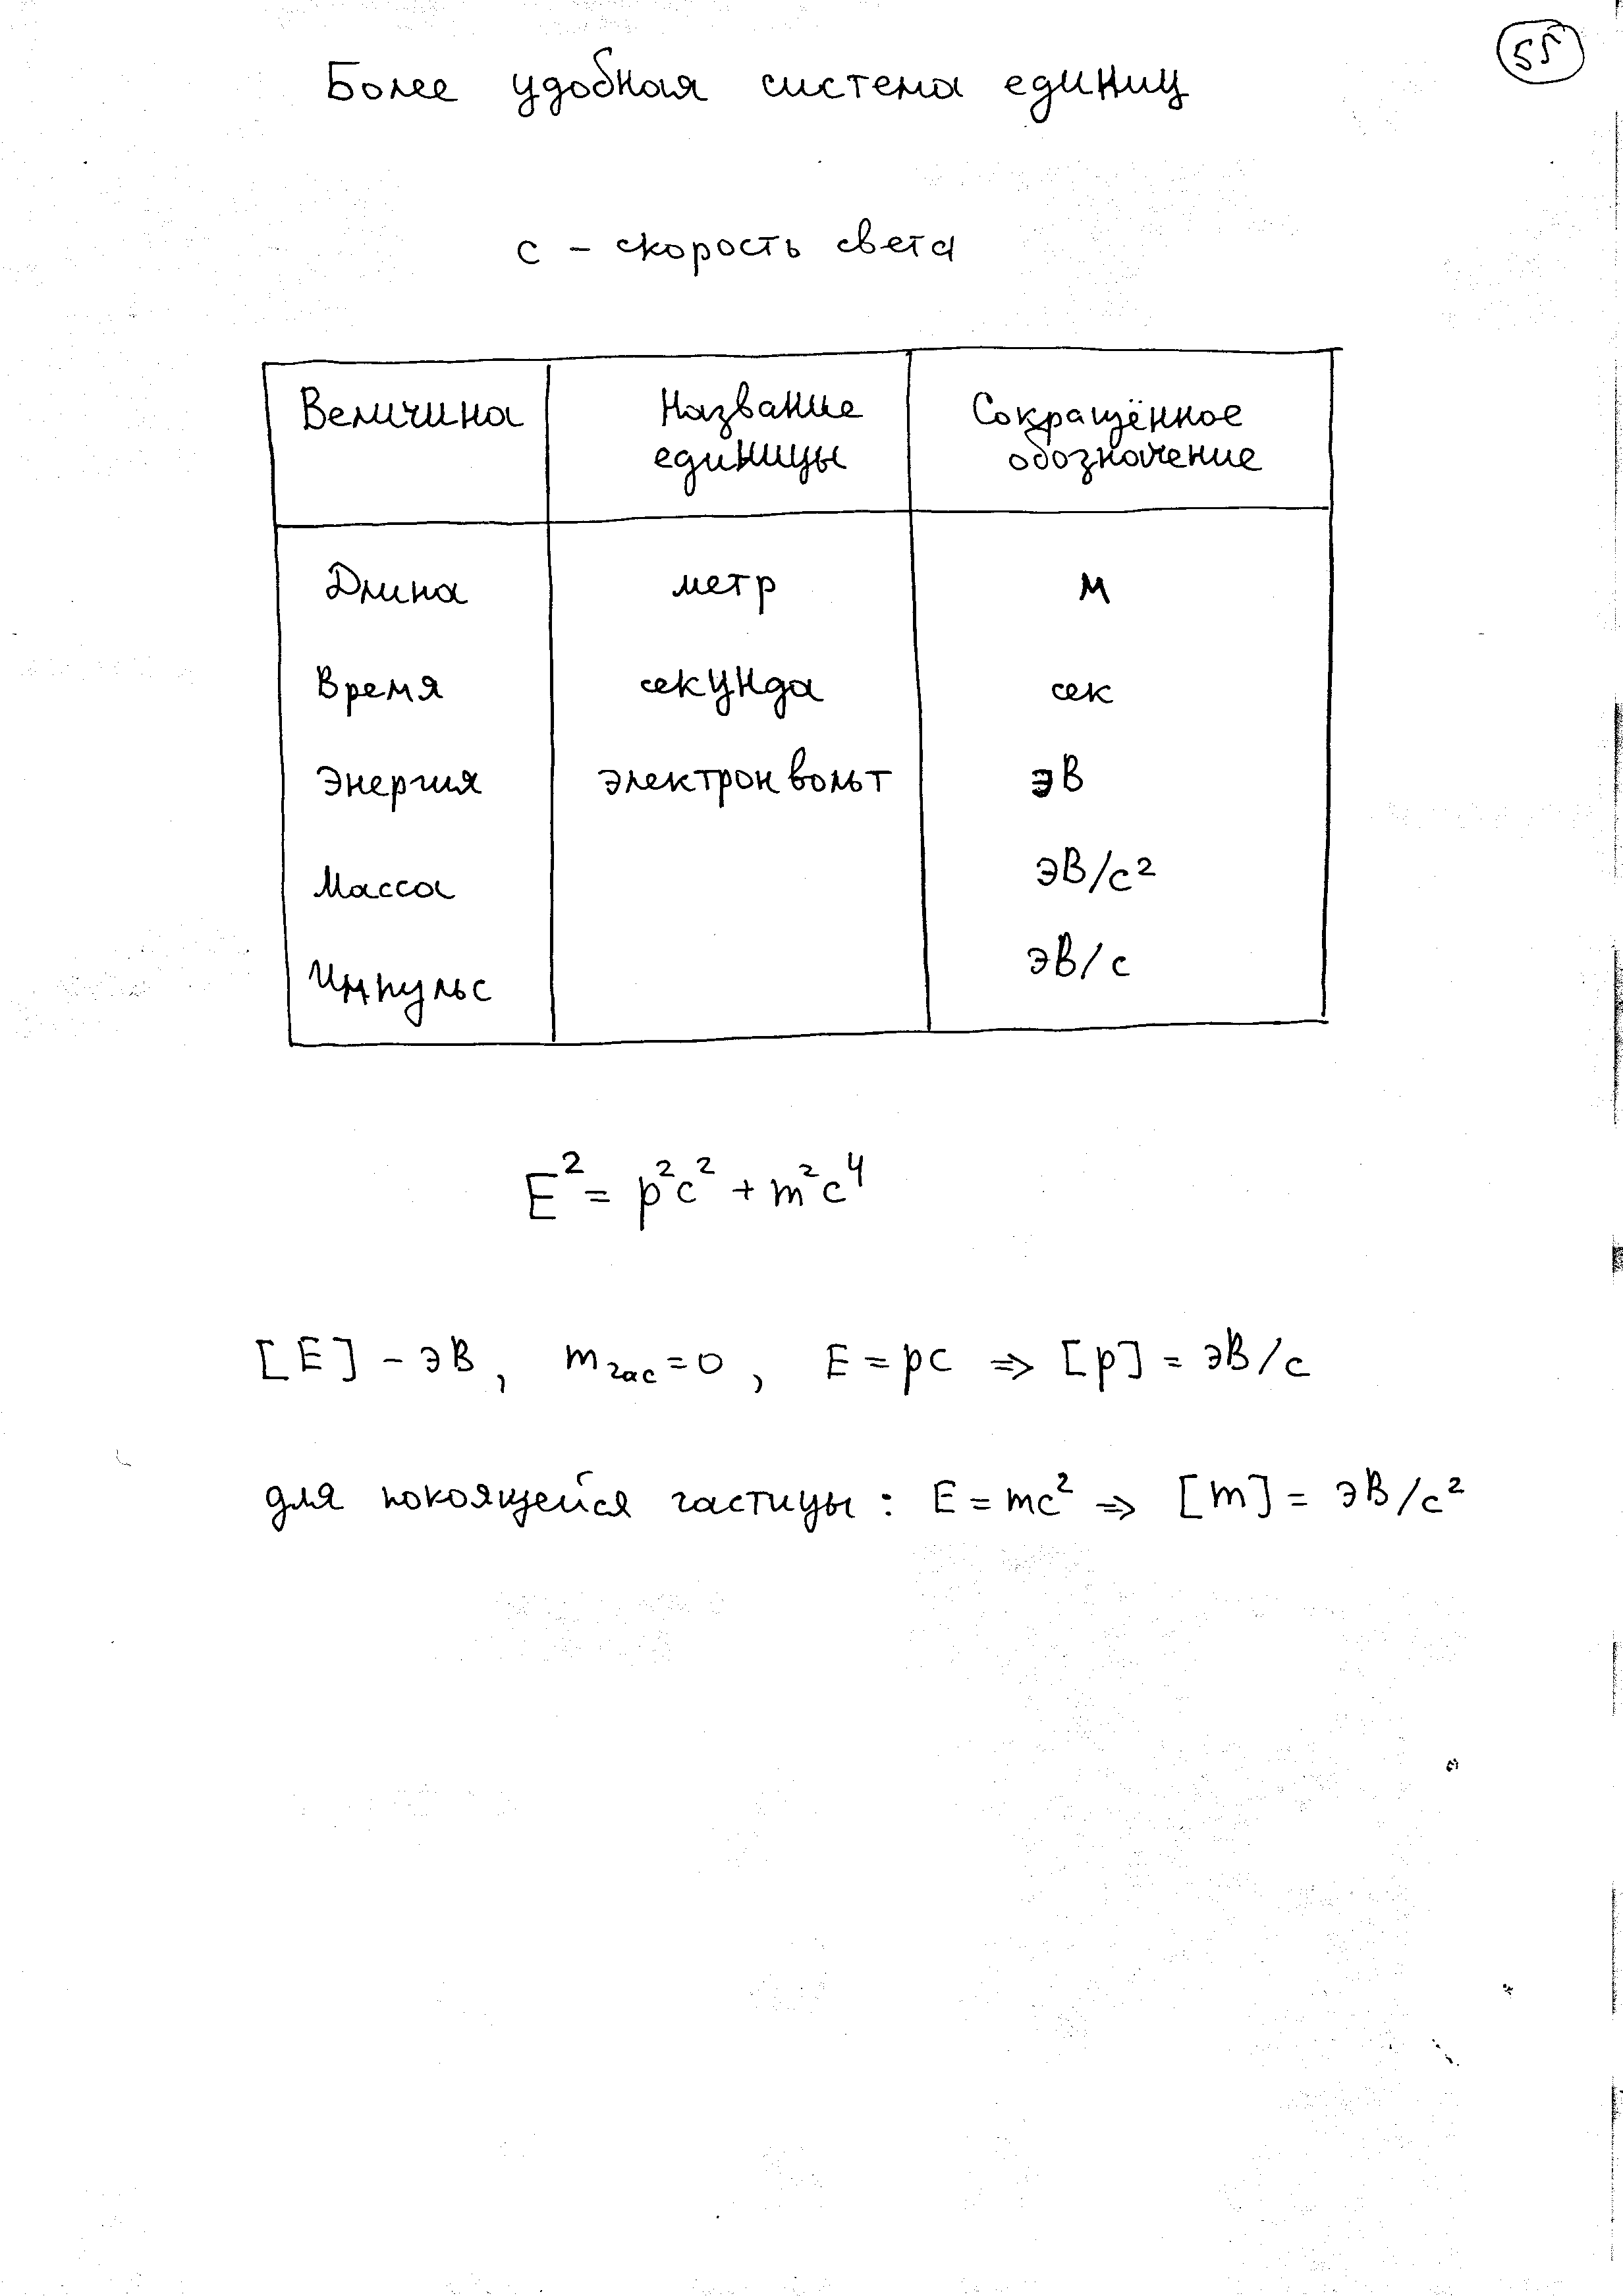 55
Более удобная система единиц
c - скорость света
Величина Название единицы Сокращённое обозначение
Длина метр м
Время секунда сек
Энергия электронвольт эВ
Масса эВ/c²
Импульс эВ/c
E² = p²c² + m²c⁴
[E] - эВ, mчас = 0, E = pc ⇒ [p] = эВ/c
для покоящейся частицы: E = mc² ⇒ [m] = эВ/c²